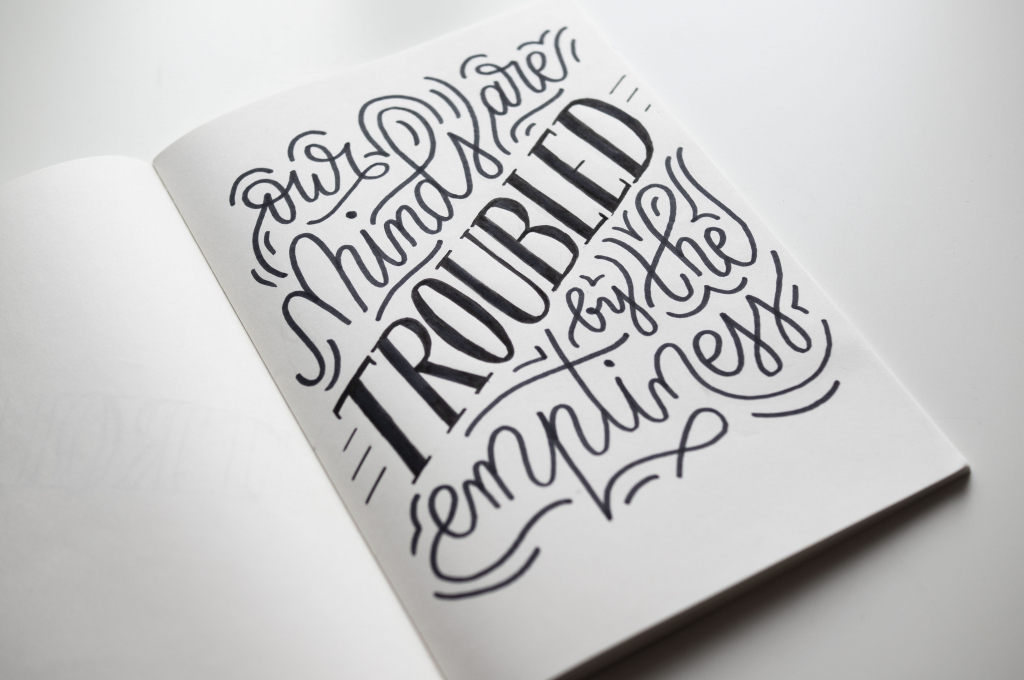 our
minds are
TROUBLED
by the
emptiness